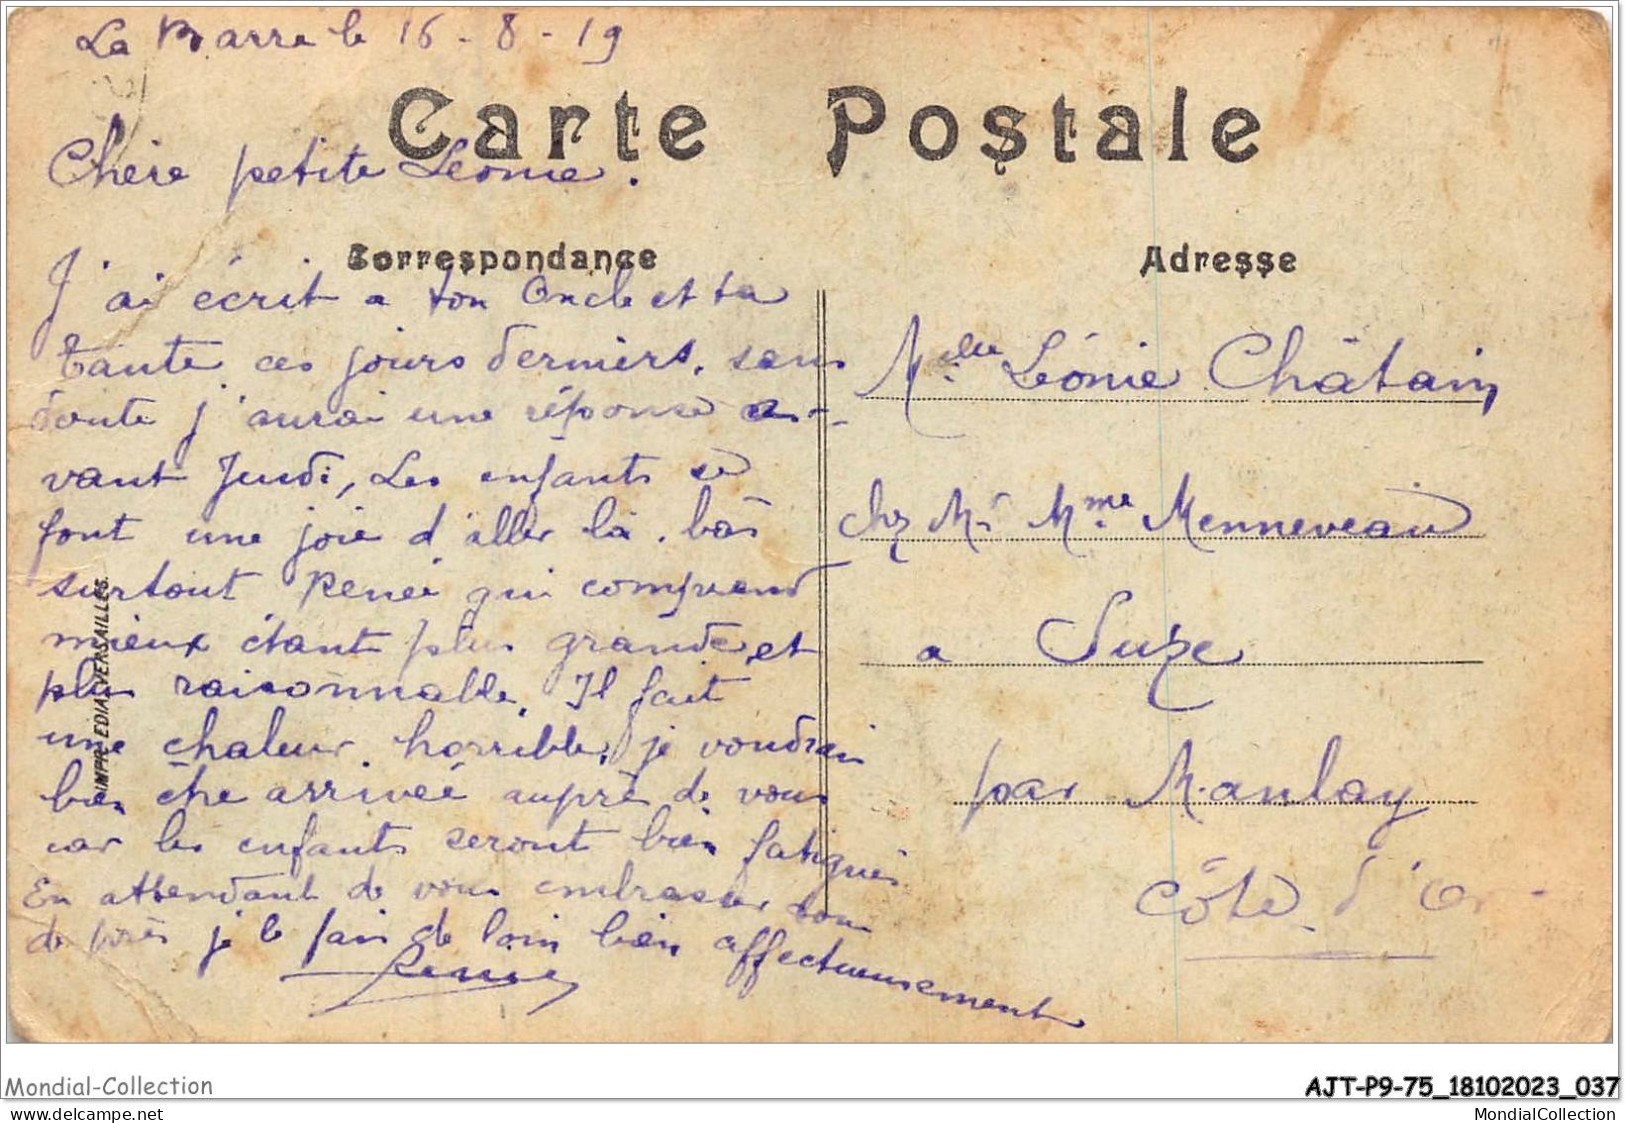 La Barre le 16 - 8 - 19
Carte Postale
Chère petite Léonie.
Correspondance
J'ai écrit a ton Oncle et ta
tante ces jours derniers, sans
doute j'aurai une réponse a-
vant Jeudi, Les enfants se
font une joie d'aller là-bas
surtout Renée qui comprend
mieux étant plus grande et
plus raisonnable. Il fait
une chaleur horrible, je voudrai
bien être arrivée auprès de vous
car les enfants seront bien fatigués
En attendant de vous embrasser tous
de près je le fais de loin bien affectueusement
IMPR. EDIA. VERSAILLES.
Adresse
Melle Léonie Châtain
chez Mr Mme Menneveau
a Suze
par Manlay
Côte d'Or
Mondial-Collection
AJT-P9-75_18102023_037
delcampe.net
MondialCollection